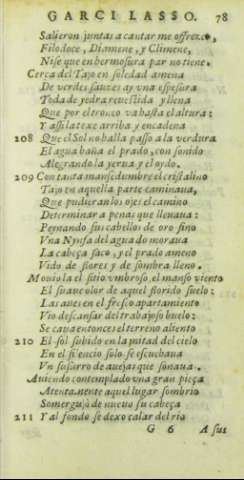 GARCI LASSO. 78
Salieron juntas a cantar me ofrezco,
Filodoce, Diamene, y Climene,
Nise que en hermosura par no tiene.
Cerca del Tajo en soledad amena
De verdes sauzes ay vna espesura
Toda de yedra reuestida y llena
Que por el tronco va hasta el altura:
Y assi la texe arriba y encadena
208 Que el Sol no halla passo a la verdura
El agua baña el prado, con sonido
Alegrando la yerua y el oydo.
209 Con tanta mansedumbre el cristalino
Tajo en aquella parte caminaua,
Que pudieran los ojos el camino
Determinar a penas que lleuaua:
Peynando sus cabellos de oro fino
Vna Nynfa del agua do moraua
La cabeça sacò, y el prado ameno
Vido de flores y de sombra lleno.
Mouiola el sitio vmbroso, el manso viento
El suaue olor de aquel florido suelo:
Las aues en el fresco apartamiento
Vio descansar del trabajoso buelo:
Secaua entonces el terreno aliento
210 El sol subido en la mitad del cielo
En el silencio solo se escuchaua
Vn susurro de auejas que sonaua.
Auiendo contemplado vna gran pieça
Atentamente aquel lugar sombrio
Somergujò de nueuo su cabeça
211 Y al fondo se dexo calar del rio
G 6 A sus